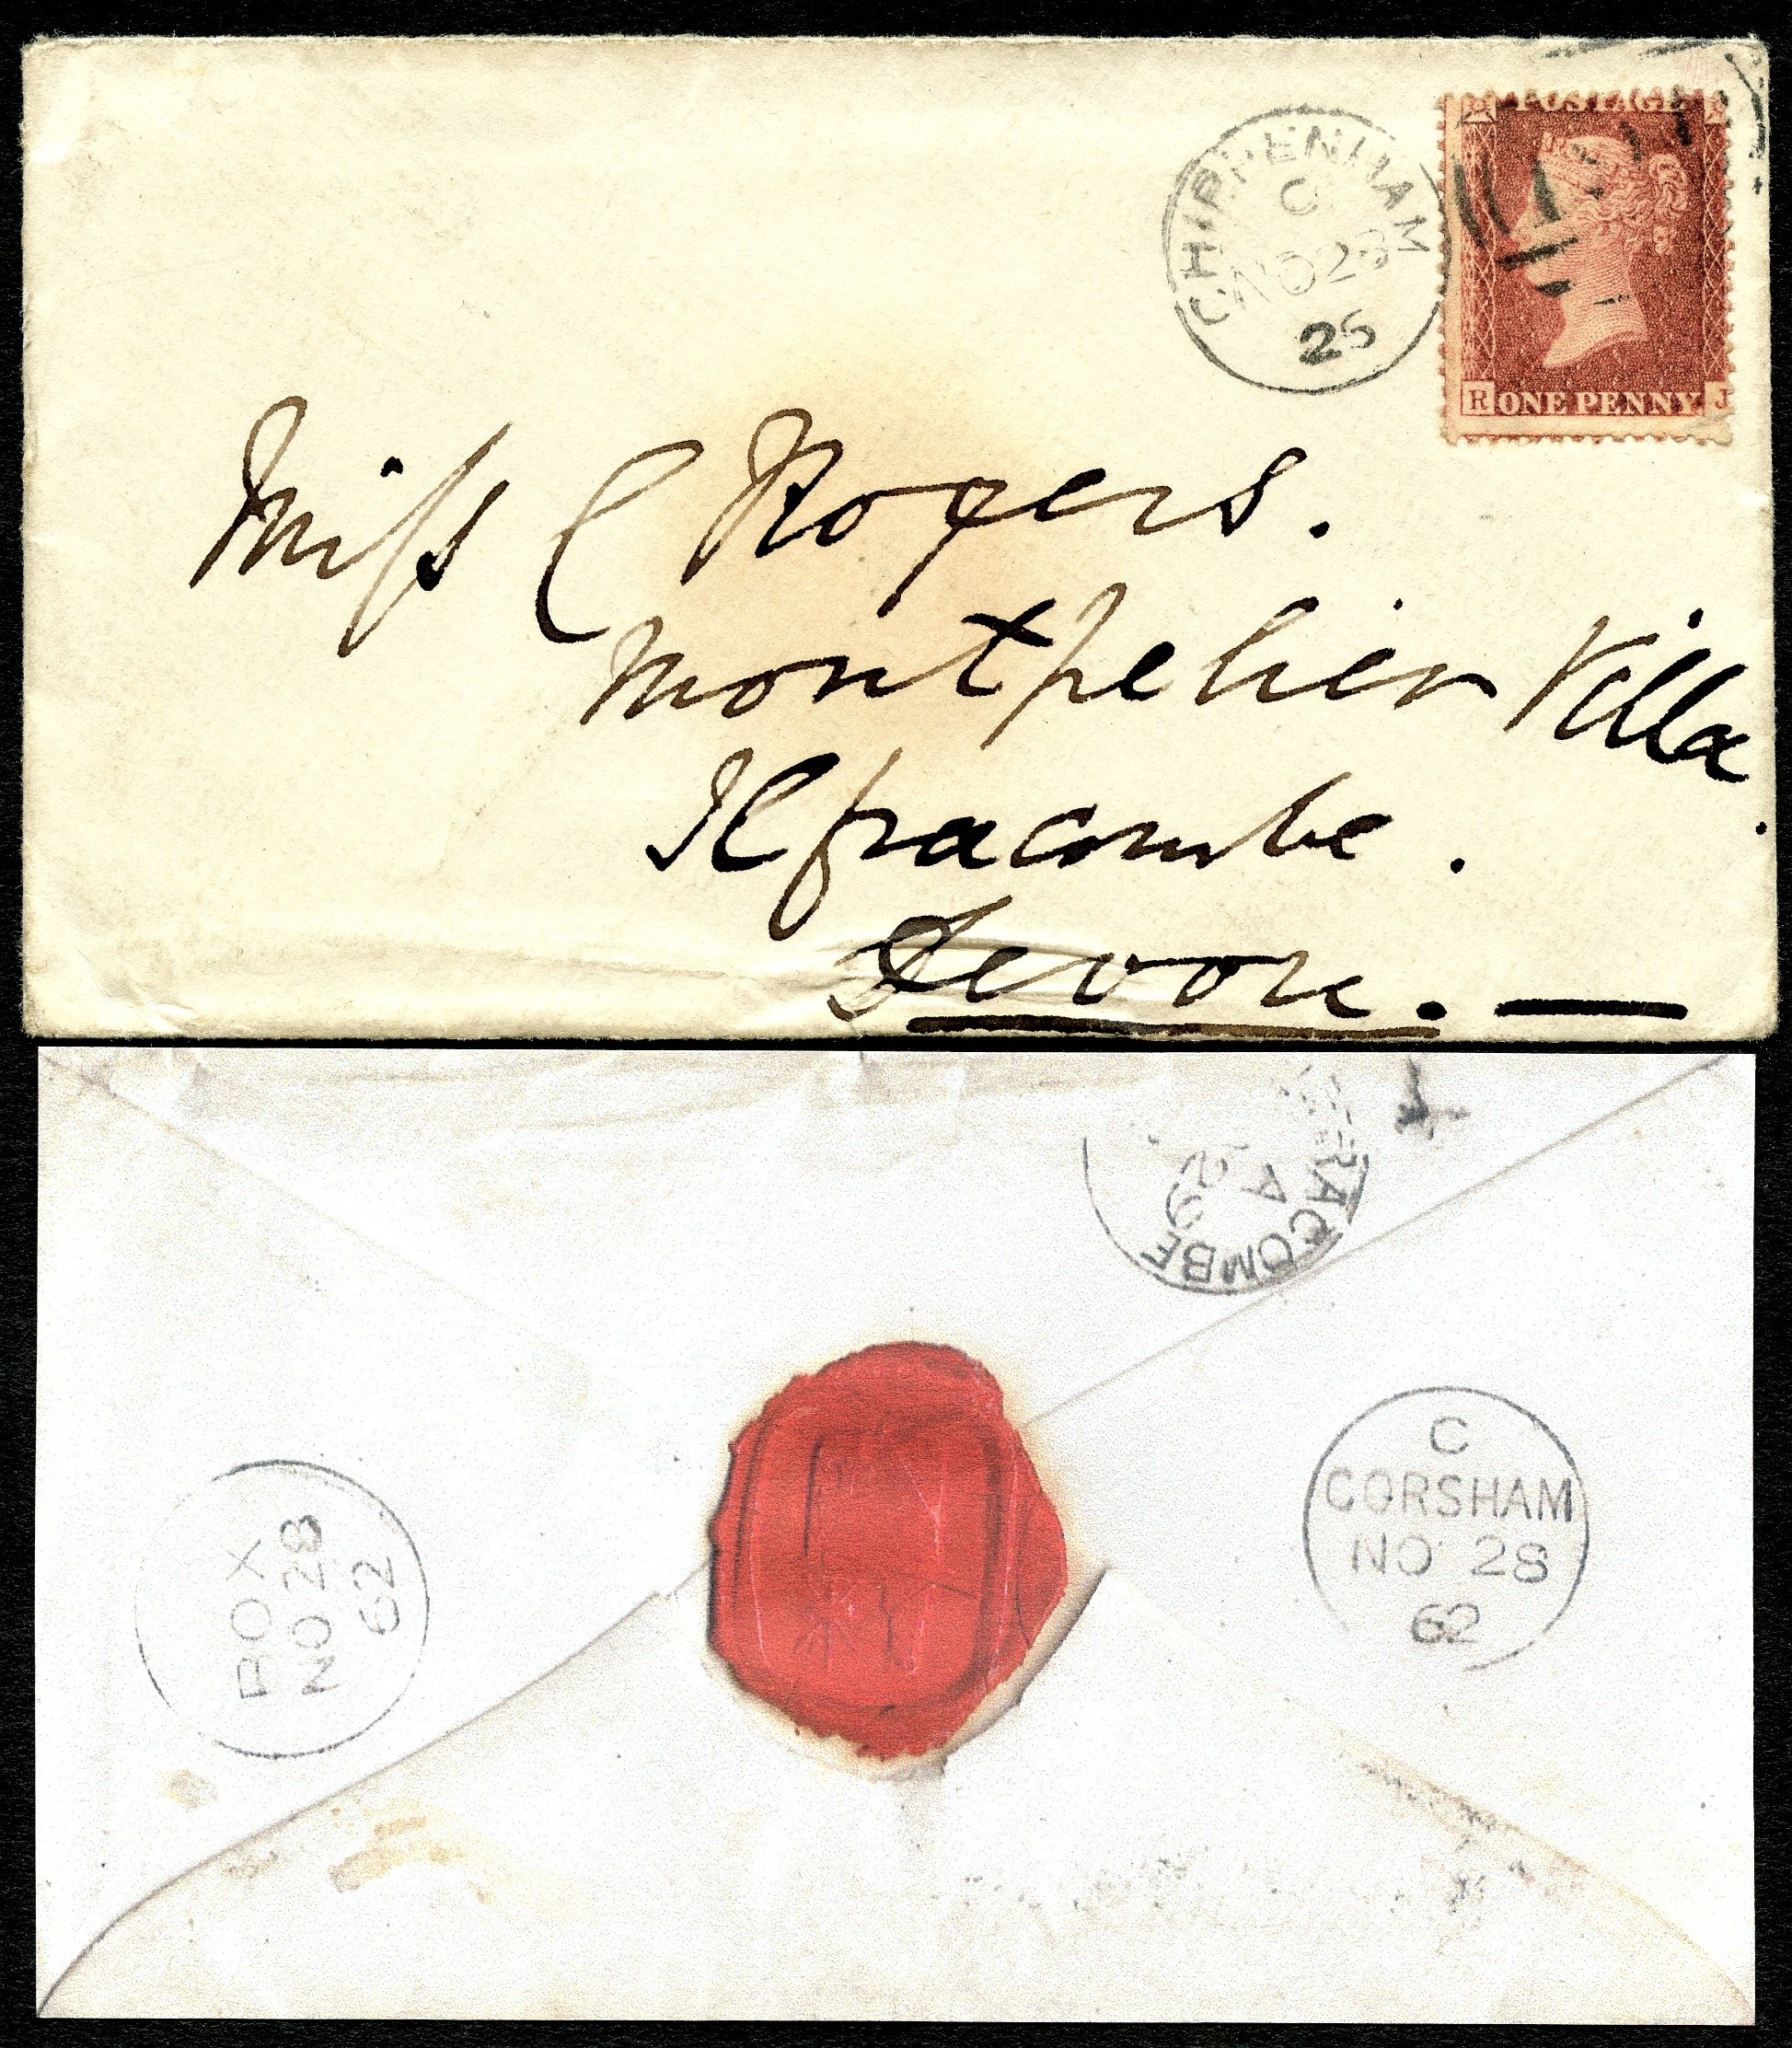 CHIPPENHAM
C
NO 28
POSTAGE
R ONE PENNY J
Miss C Rogers.
Montpelier Villa.
Ilfracombe.
Devon. —
RACOMBE
A
C
CORSHAM
NO 28
62
BOX
NO 28
62